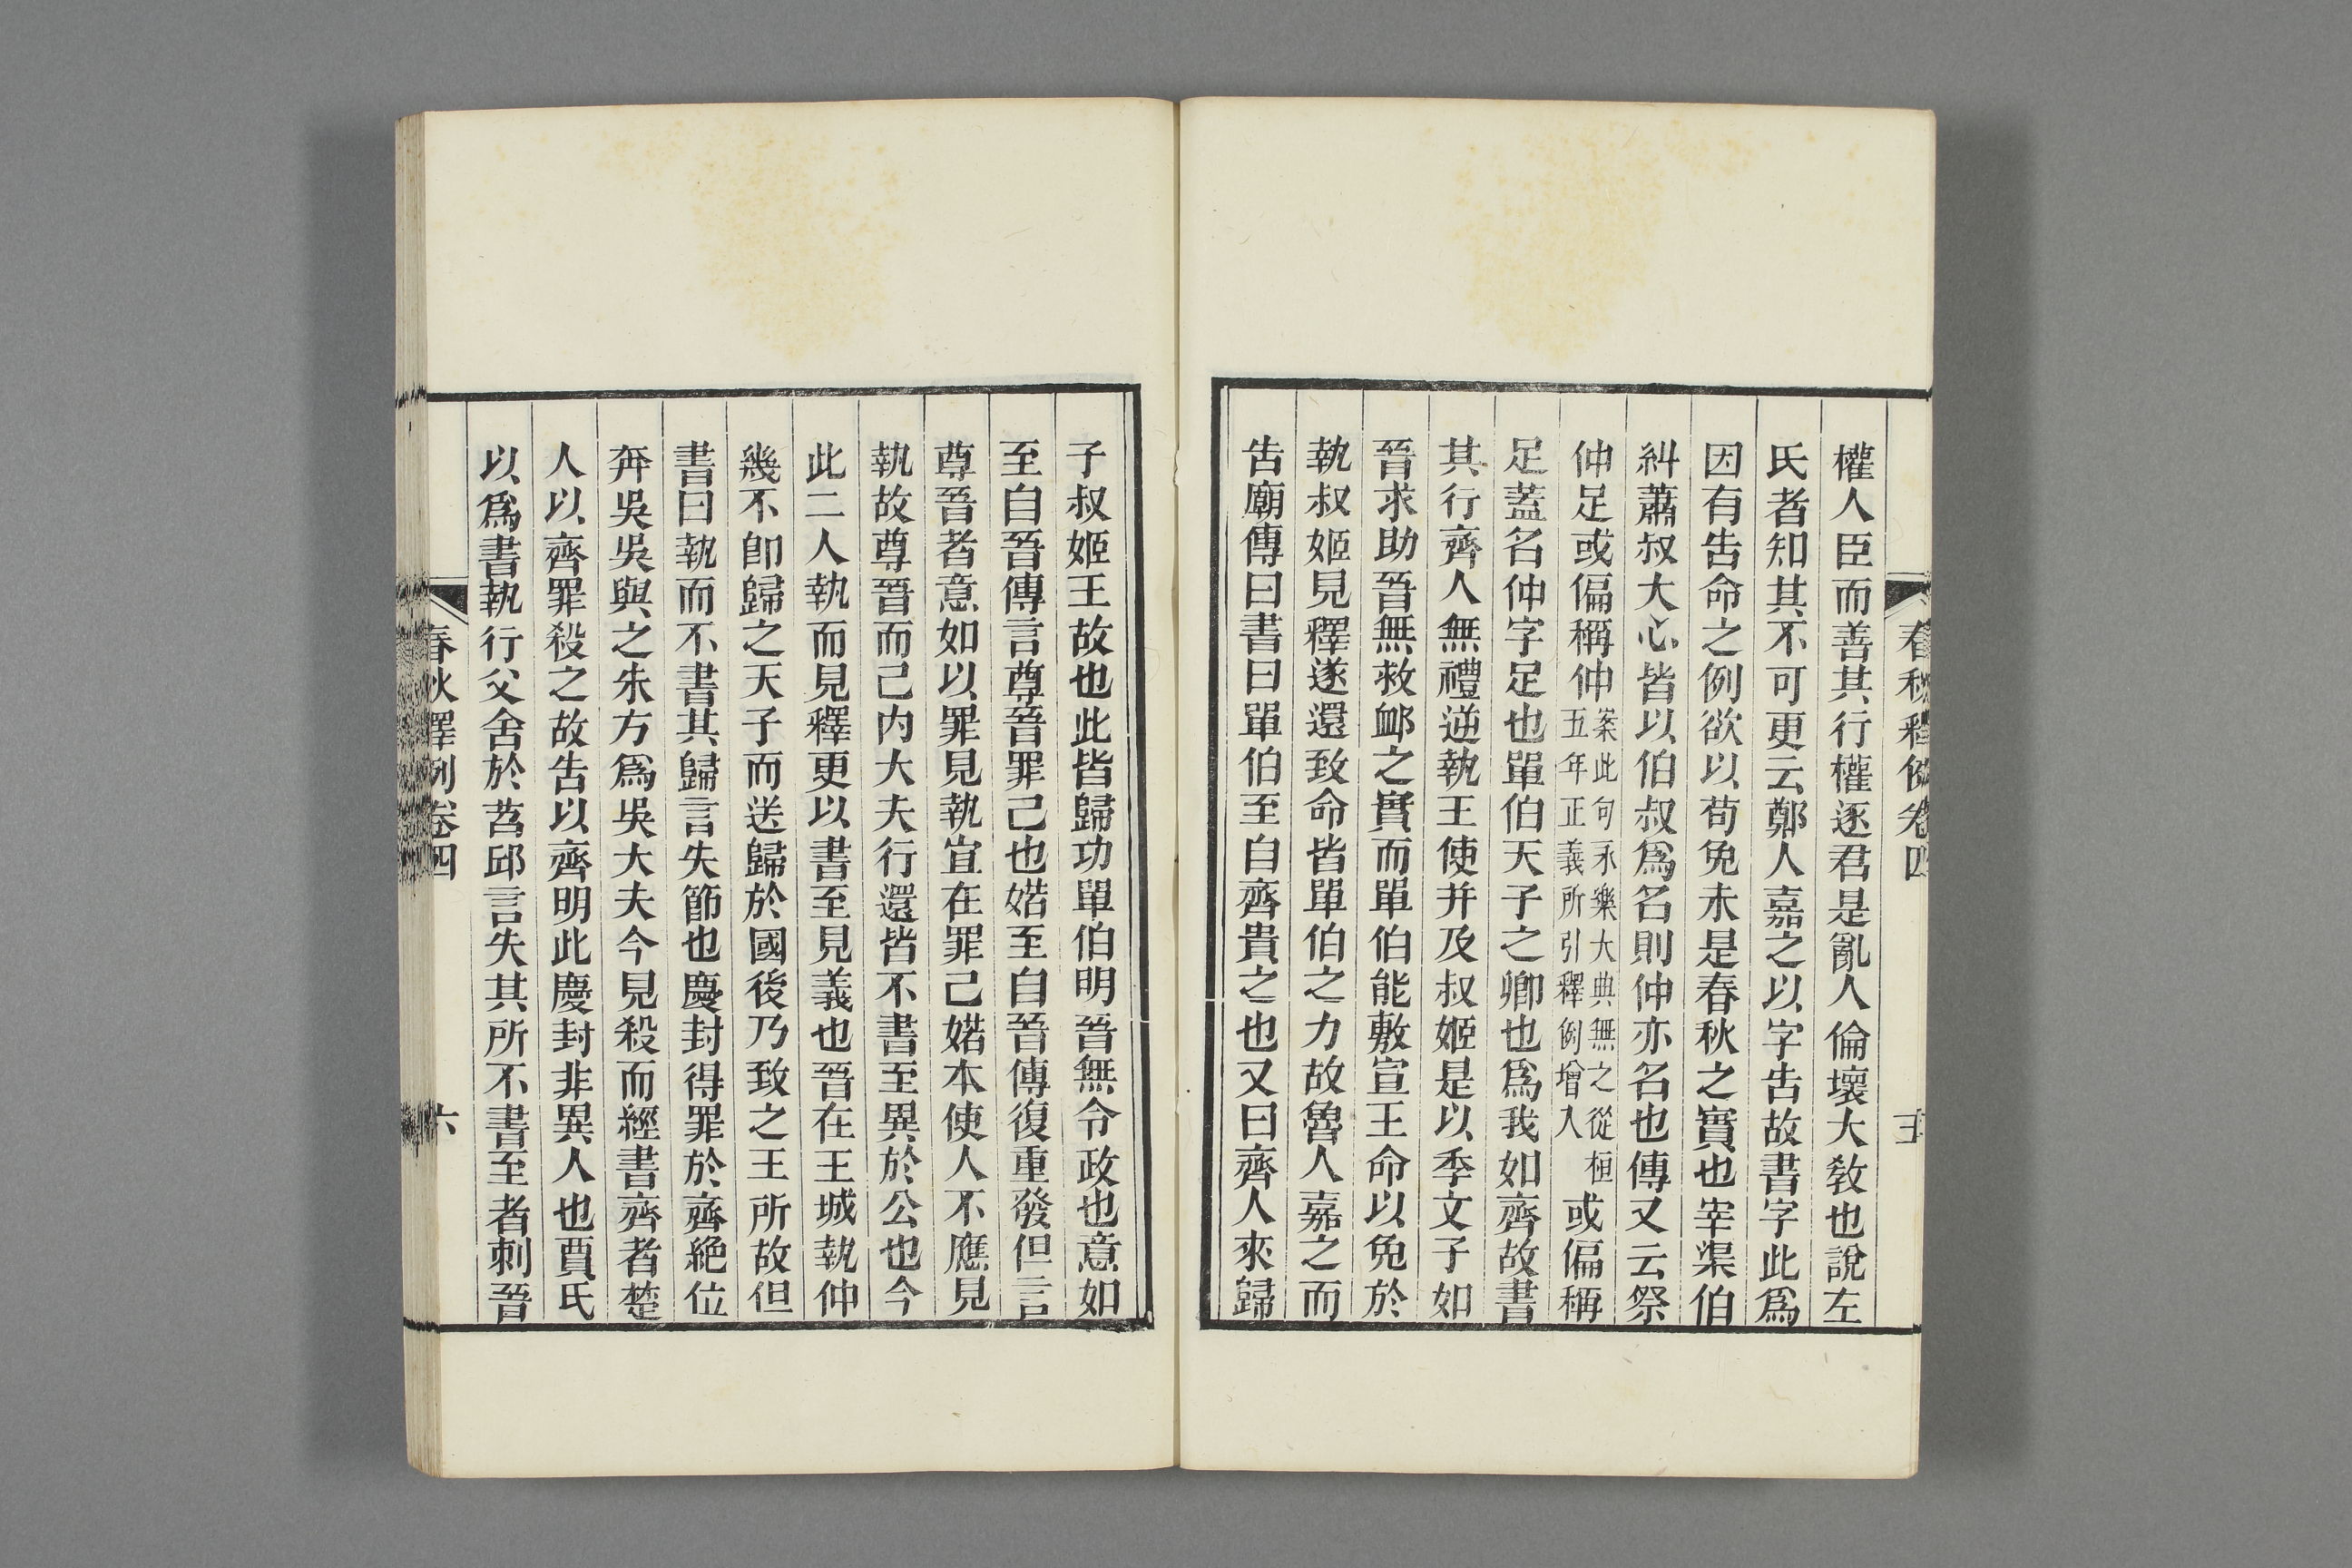 春秋釋例卷四
權人臣而善其行權逐君是亂人倫壞大敎也說左
氏者知其不可更云鄭人嘉之以字告故書字此爲
因有告命之例欲以苟免未是春秋之實也宰渠伯
糾蕭叔大心皆以伯叔爲名則仲亦名也傳又云祭
仲足或偏稱仲案此句永樂大典無之從桓五年正義所引釋例增入或偏稱
足蓋名仲字足也單伯天子之卿也爲我如齊故書
其行齊人無禮逆執王使并及叔姬是以季文子如
晉求助晉無救卹之實而單伯能敷宣王命以免於
執叔姬見釋遂還致命皆單伯之力故魯人嘉之而
告廟傳曰書曰單伯至自齊貴之也又曰齊人來歸
子叔姬王故也此皆歸功單伯明晉無令政也意如
至自晉傳言尊晉罪己也婼至自晉傳復重發但言
尊晉者意如以罪見執宜在罪己婼本使人不應見
執故尊晉而己内大夫行還皆不書至異於公也今
此二人執而見釋更以書至見義也晉在王城執仲
幾不卽歸之天子而送歸於國後乃致之王所故但
書曰執而不書其歸言失節也慶封得罪於齊絶位
奔吳吳與之朱方爲吳大夫今見殺而經書齊者楚
人以齊罪殺之故告以齊明此慶封非異人也賈氏
以爲書執行父舍於苕邱言失其所不書至者刺晉
春秋釋例卷四
六